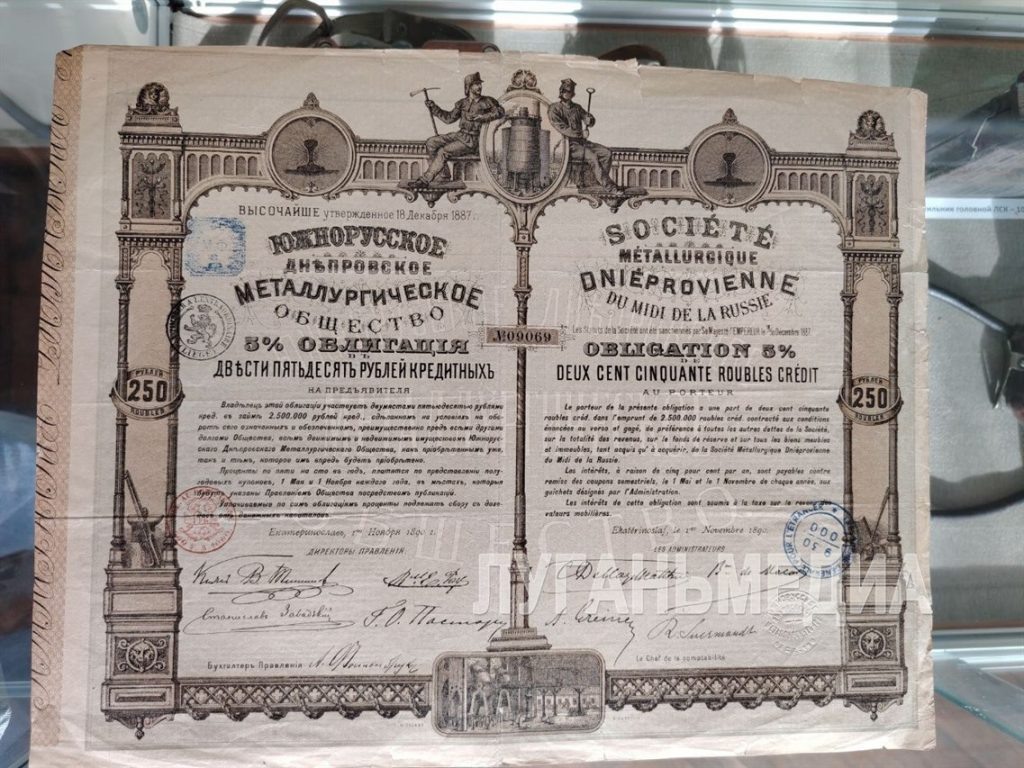 ВЫСОЧАЙШЕ утвержденное 18 Декабря 1887 г.
ЮЖНОРУССКОЕ
ДНѢПРОВСКОЕ
МЕТАЛЛУРГИЧЕСКОЕ
ОБЩЕСТВО
5% ОБЛИГАЦІЯ
ВЪ
ДВѢСТИ ПЯТЬДЕСЯТЪ РУБЛЕЙ КРЕДИТНЫХЪ
НА ПРЕДЪЯВИТЕЛЯ
Владѣлецъ этой облигаціи участвуетъ двумястами пятьюдесятью рублями
кред. въ займѣ 2.500.000 рублей кред., сдѣланномъ на условіяхъ на обо-
ротѣ сего означенныхъ и обезпеченномъ, преимущественно предъ всѣми другими
долгами Общества, всѣмъ движимымъ и недвижимымъ имуществомъ Южнорус-
скаго Днѣпровскаго Металлургическаго Общества, какъ пріобрѣтеннымъ уже,
такъ и тѣмъ, которое имъ впредь будетъ пріобрѣтено.
Проценты по пяти на сто въ годъ, платятся по представленіи полу-
годовыхъ купоновъ, 1 Мая и 1 Ноября каждаго года, въ мѣстахъ, которыя
будутъ указаны Правленіемъ Общества посредствомъ публикаціи.
Уплачиваемые по симъ облигаціямъ проценты подлежатъ сбору съ дохо-
довъ отъ денежныхъ капиталовъ.
Екатеринославъ, 1го Ноября 1890 г.
ДИРЕКТОРЫ ПРАВЛЕНІЯ.
Станиславъ
Бухгалтеръ Правленія
№09069
250
РУБЛЕЙ
ROUBLES
SOCIÉTÉ
MÉTALLURGIQUE
DNIÉPROVIENNE
DU MIDI DE LA RUSSIE
Les Statuts de la Société ont été sanctionnés par Sa Majesté l'EMPEREUR le 18/30 Décembre 1887
OBLIGATION 5%
DE
DEUX CENT CINQUANTE ROUBLES CRÉDIT
AU PORTEUR
Le porteur de la présente obligation a une part de deux cent cinquante
roubles créd. dans l'emprunt de 2.500.000 roubles créd contracté aux conditions
énoncées au verso et gagé, de préférence à toutes les autres dettes de la Société,
sur la totalité des revenus, sur le fonds de réserve et sur tous les biens meubles
et immeubles, tant acquis qu'à acquérir, de la Société Métallurgique Dniéprovienne
du Midi de la Russie.
Les intérêts, à raison de cinq pour cent par an, sont payables contre
remise des coupons semestriels, le 1 Mai et le 1 Novembre de chaque année, aux
guichets désignés par l'Administration.
Les intérêts de cette obligation sont soumis à la taxe sur le revenu des
valeurs mobilières.
Ekatérinoslaf, le 1er Novembre 1890.
LES ADMINISTRATEURS
Le Chef de la comptabilité
250
РУБЛЕЙ
ROUBLES
ЛУГАНЬМЕДИА